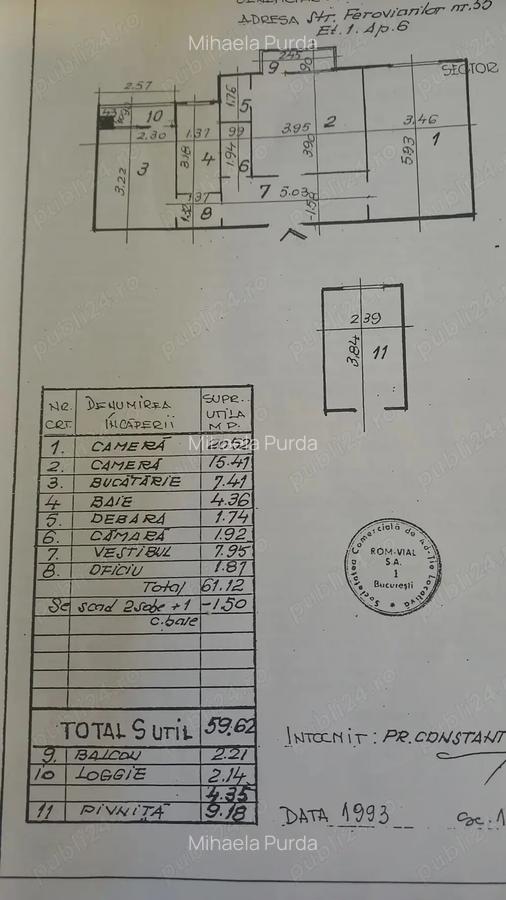 ADRESA Str. Feroviarilor nr. 35
Et. 1. Ap. 6
Mihaela Purda
SECTOR
2.45
9
90
2.57
1.76
5
10
2
3.46
1
2.30
1.37
99
3.95
390
5.93
3
3.22
3.18
4
1.94
6
7
5.03
1.37
1.32
8
1.58
2.39
3.84
11
NR. CRT.
DENUMIREA ÎNCĂPERII
SUPR. UTILA M.P.
1. CAMERĂ 20.52
Mihaela Purda
2. CAMERĂ 15.41
3. BUCĂTĂRIE 7.41
4 BAIE 4.36
5. DEBARA 1.74
6. CĂMARĂ 1.92
7. VESTIBUL 7.95
8. OFICIU 1.81
Total 61.12
Se scad 2 sobe + 1 -1.50
c. baie
Societatea Comercială de Ad-ție Locativă
ROM-VIAL
S.A.
1
București
TOTAL S UTIL 59.62
9. BALCON 2.21
10 LOGGIE 2.14
4.35
11 PIVNIȚĂ 9.18
ÎNTOCMIT: PR. CONSTANT
DATA 1993
Sc. 1
Mihaela Purda
publi24.ro